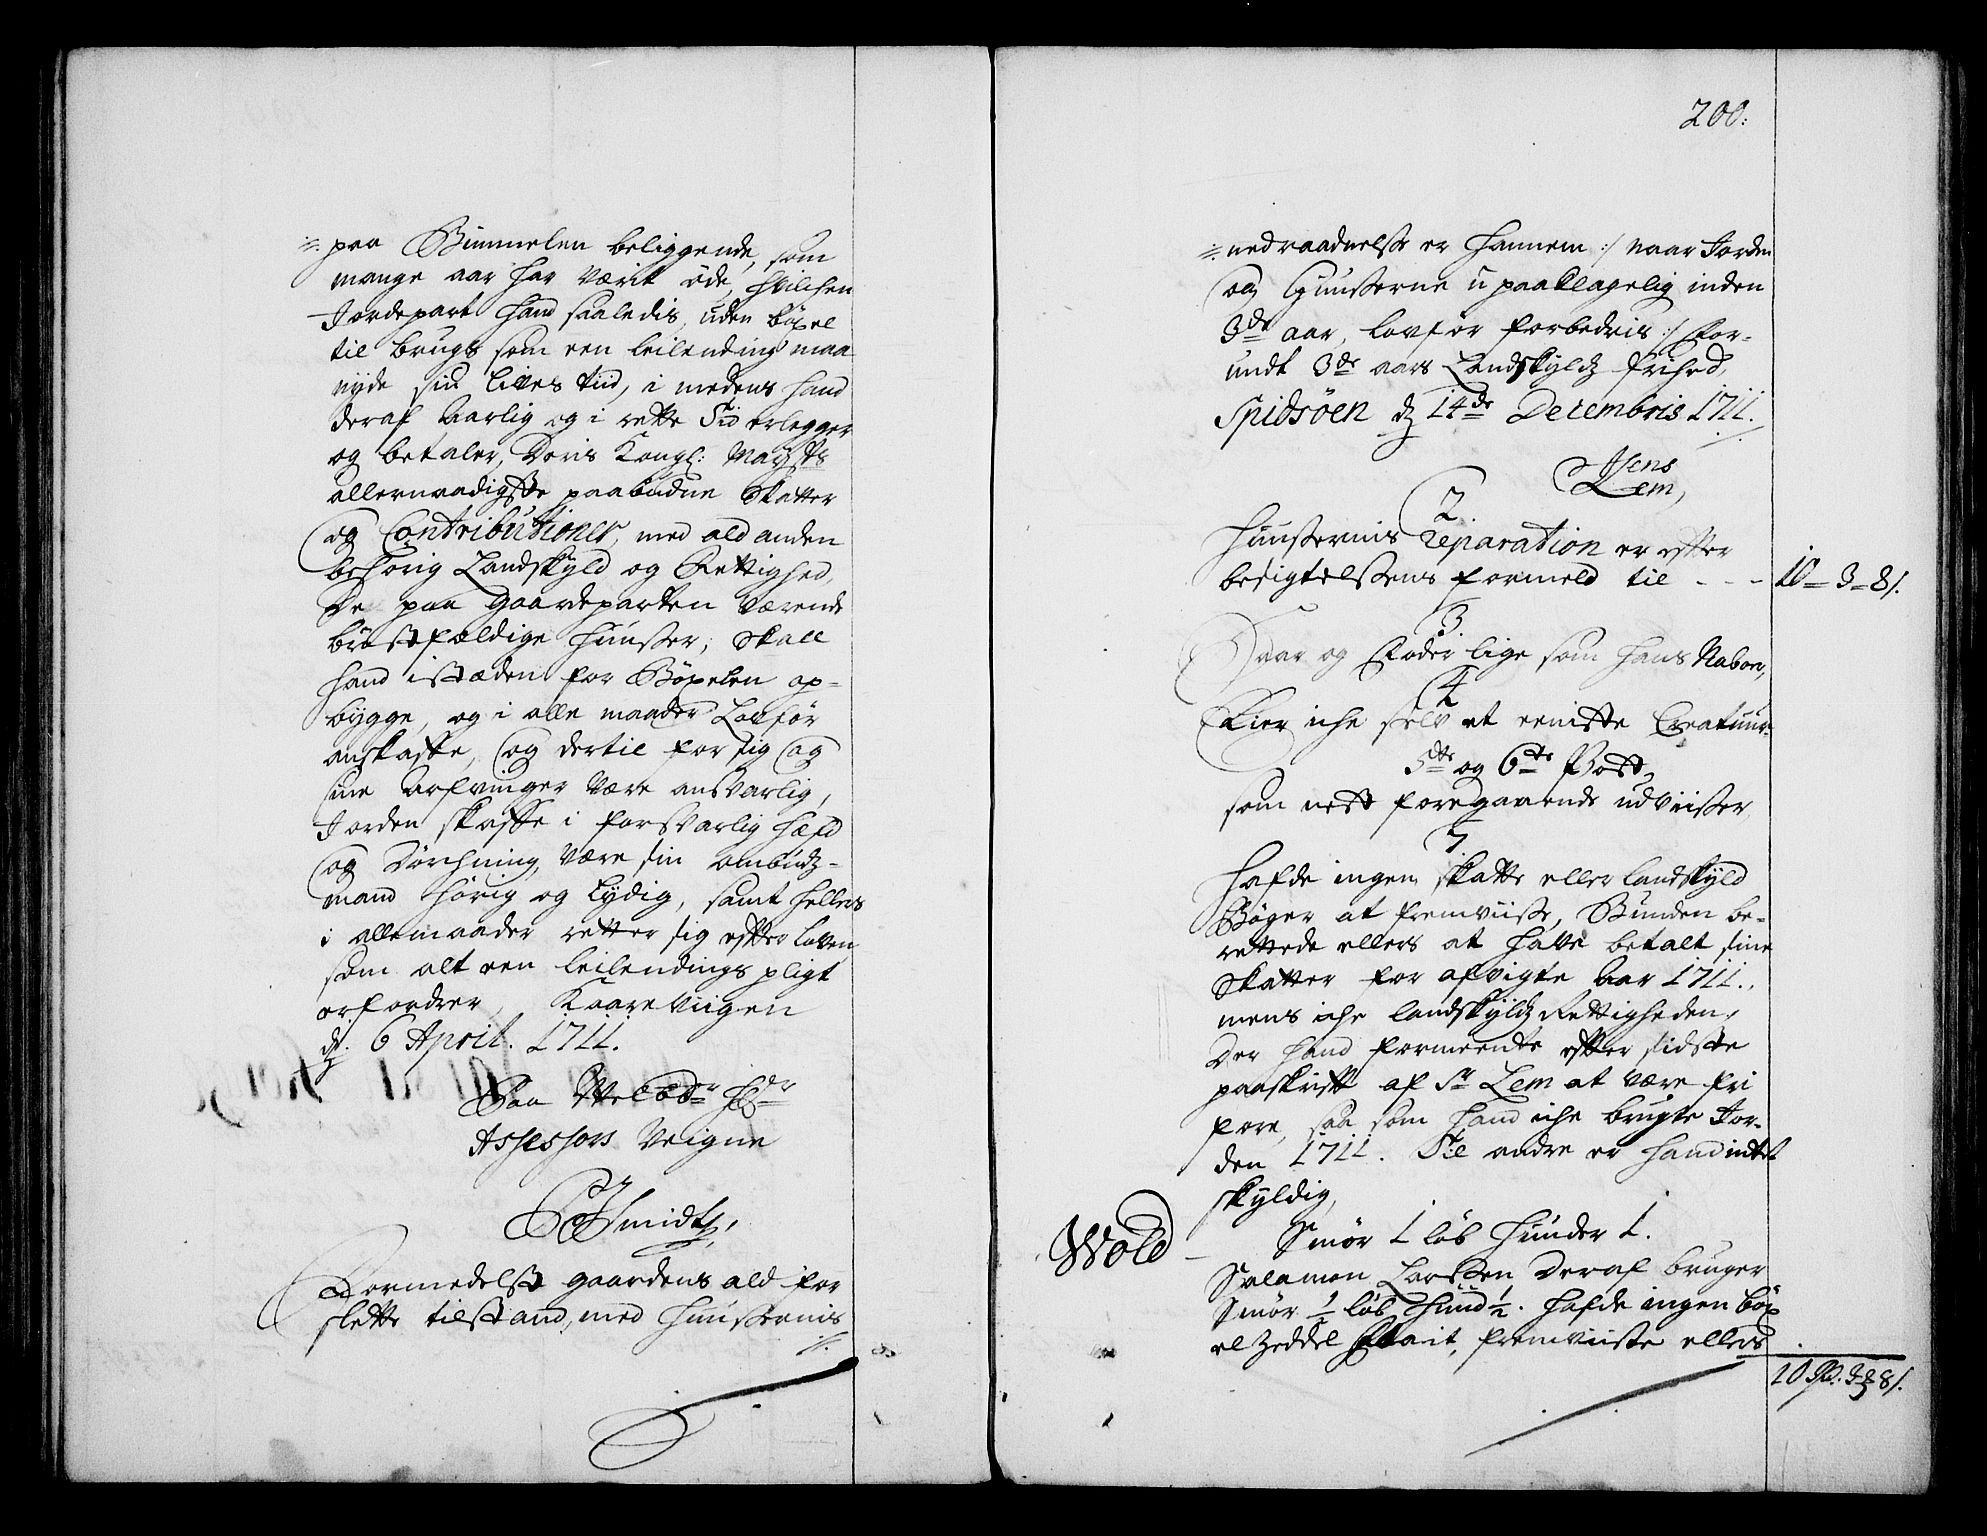 paa Bimmelen beliggende, som
mange aar har værit öde, hvilchen
Jordepart hand saaledis, uden böxel
til brugs som een leilending maa
nyde sin lives tiid, i medens hand
deraf Aarlig og i rette Tid erlegger
og betaler, Deris Kongl: Mayst:s
allernaadigste paabudne Skatter
og Contributioner, med ald anden
behörig Landskyld og Rettighed,
De paa Gaardeparten værende
bröstfældige Huusser, skall
hand i stæden for Böxelen op-
bygge, og i alle maader Lovför
anskaffe, og dertil for sig og
sine Arfvinger være ansvarlig,
Jorden skaffe i forsvarlig hæfd
og Dörchning, være sin ombudz-
mand hörig og lydig, samt hellers
i allemaader retter sig efter loven
som alt een leilendings pligt
erfordrer, Kaareviigen
d. 6 April. 1711.
Paa Welædr Hr
Assessors Veigne
Smidt,
Formedelst gaardens ald for
slette tilstand, med Huusernis
200:
nedraadnelse er hannem :/ naar Jorden
og Huusserne upaaklagelig inden
3de aar, lovför forbedris :/ For-
undt 3de aars Landskyldz frihed,
Spidsöen d 14de Decembris 1711.
Jens
Lem,
2
Huussernis reparation er efter
besigtelssens formeld til - - - 10 - 3 - 8/.
3.
Saar og Föder lige som hans Naboer,
4
Eier iche selv et eeniste Creatuur.
5te og 6te Post,
som nest foregaaende udviisser
7.
Hafde ingen skatte eller landskyld
Böger at fremviisse, Bunden be-
rettede ellers at have betalt sine
Skatter for afvigte Aar 1711.,
mens iche landskyldz Rettigheden,
Der hand formeente efter sidste
paaskrift af Sr Lem at være fri
fore, saa som hand iche brugte Jor-
den 1711. Til andre er hand intet
skyldig,
Smör 1 löb Huuder 1.
Wold
Salamon Larssen Deraf bruger
Smör ½ löb Huud ½. Hafde ingen böx
el Zeddel fremviiste ellers
10 3 8/.